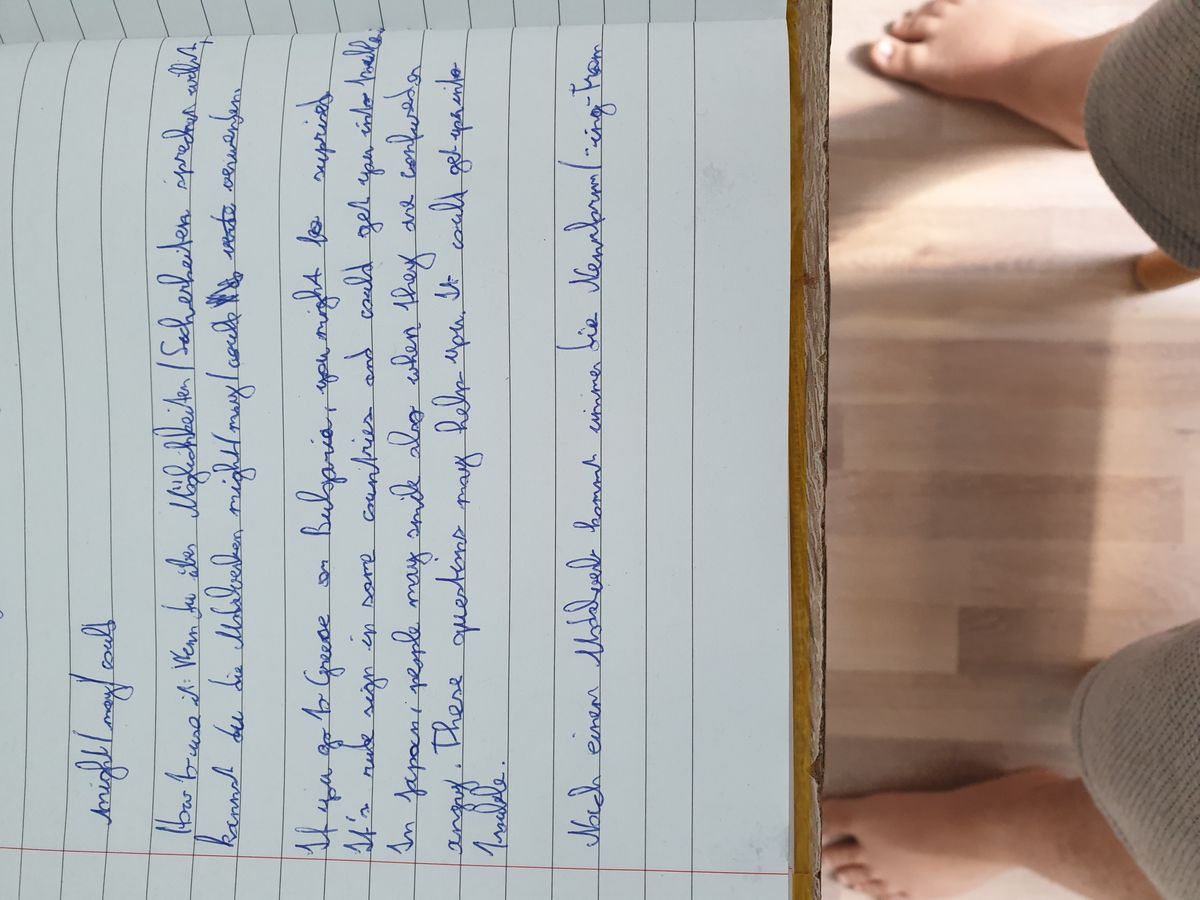 might/may/could
How to use it: Wenn du über Möglichkeiten/Sicherheiten sprechen willst,
kannst du die Modalverben might/may/could verwenden.
If you go to Greece or Bulgaria, you might be suprised
It's rude sign in some countries and could get you into
In japan, people may smile also when they are confused or
angry. These questions may help you. It could get you into
Nach einem Modalverb kommt immer die Nennform/-ing-Form